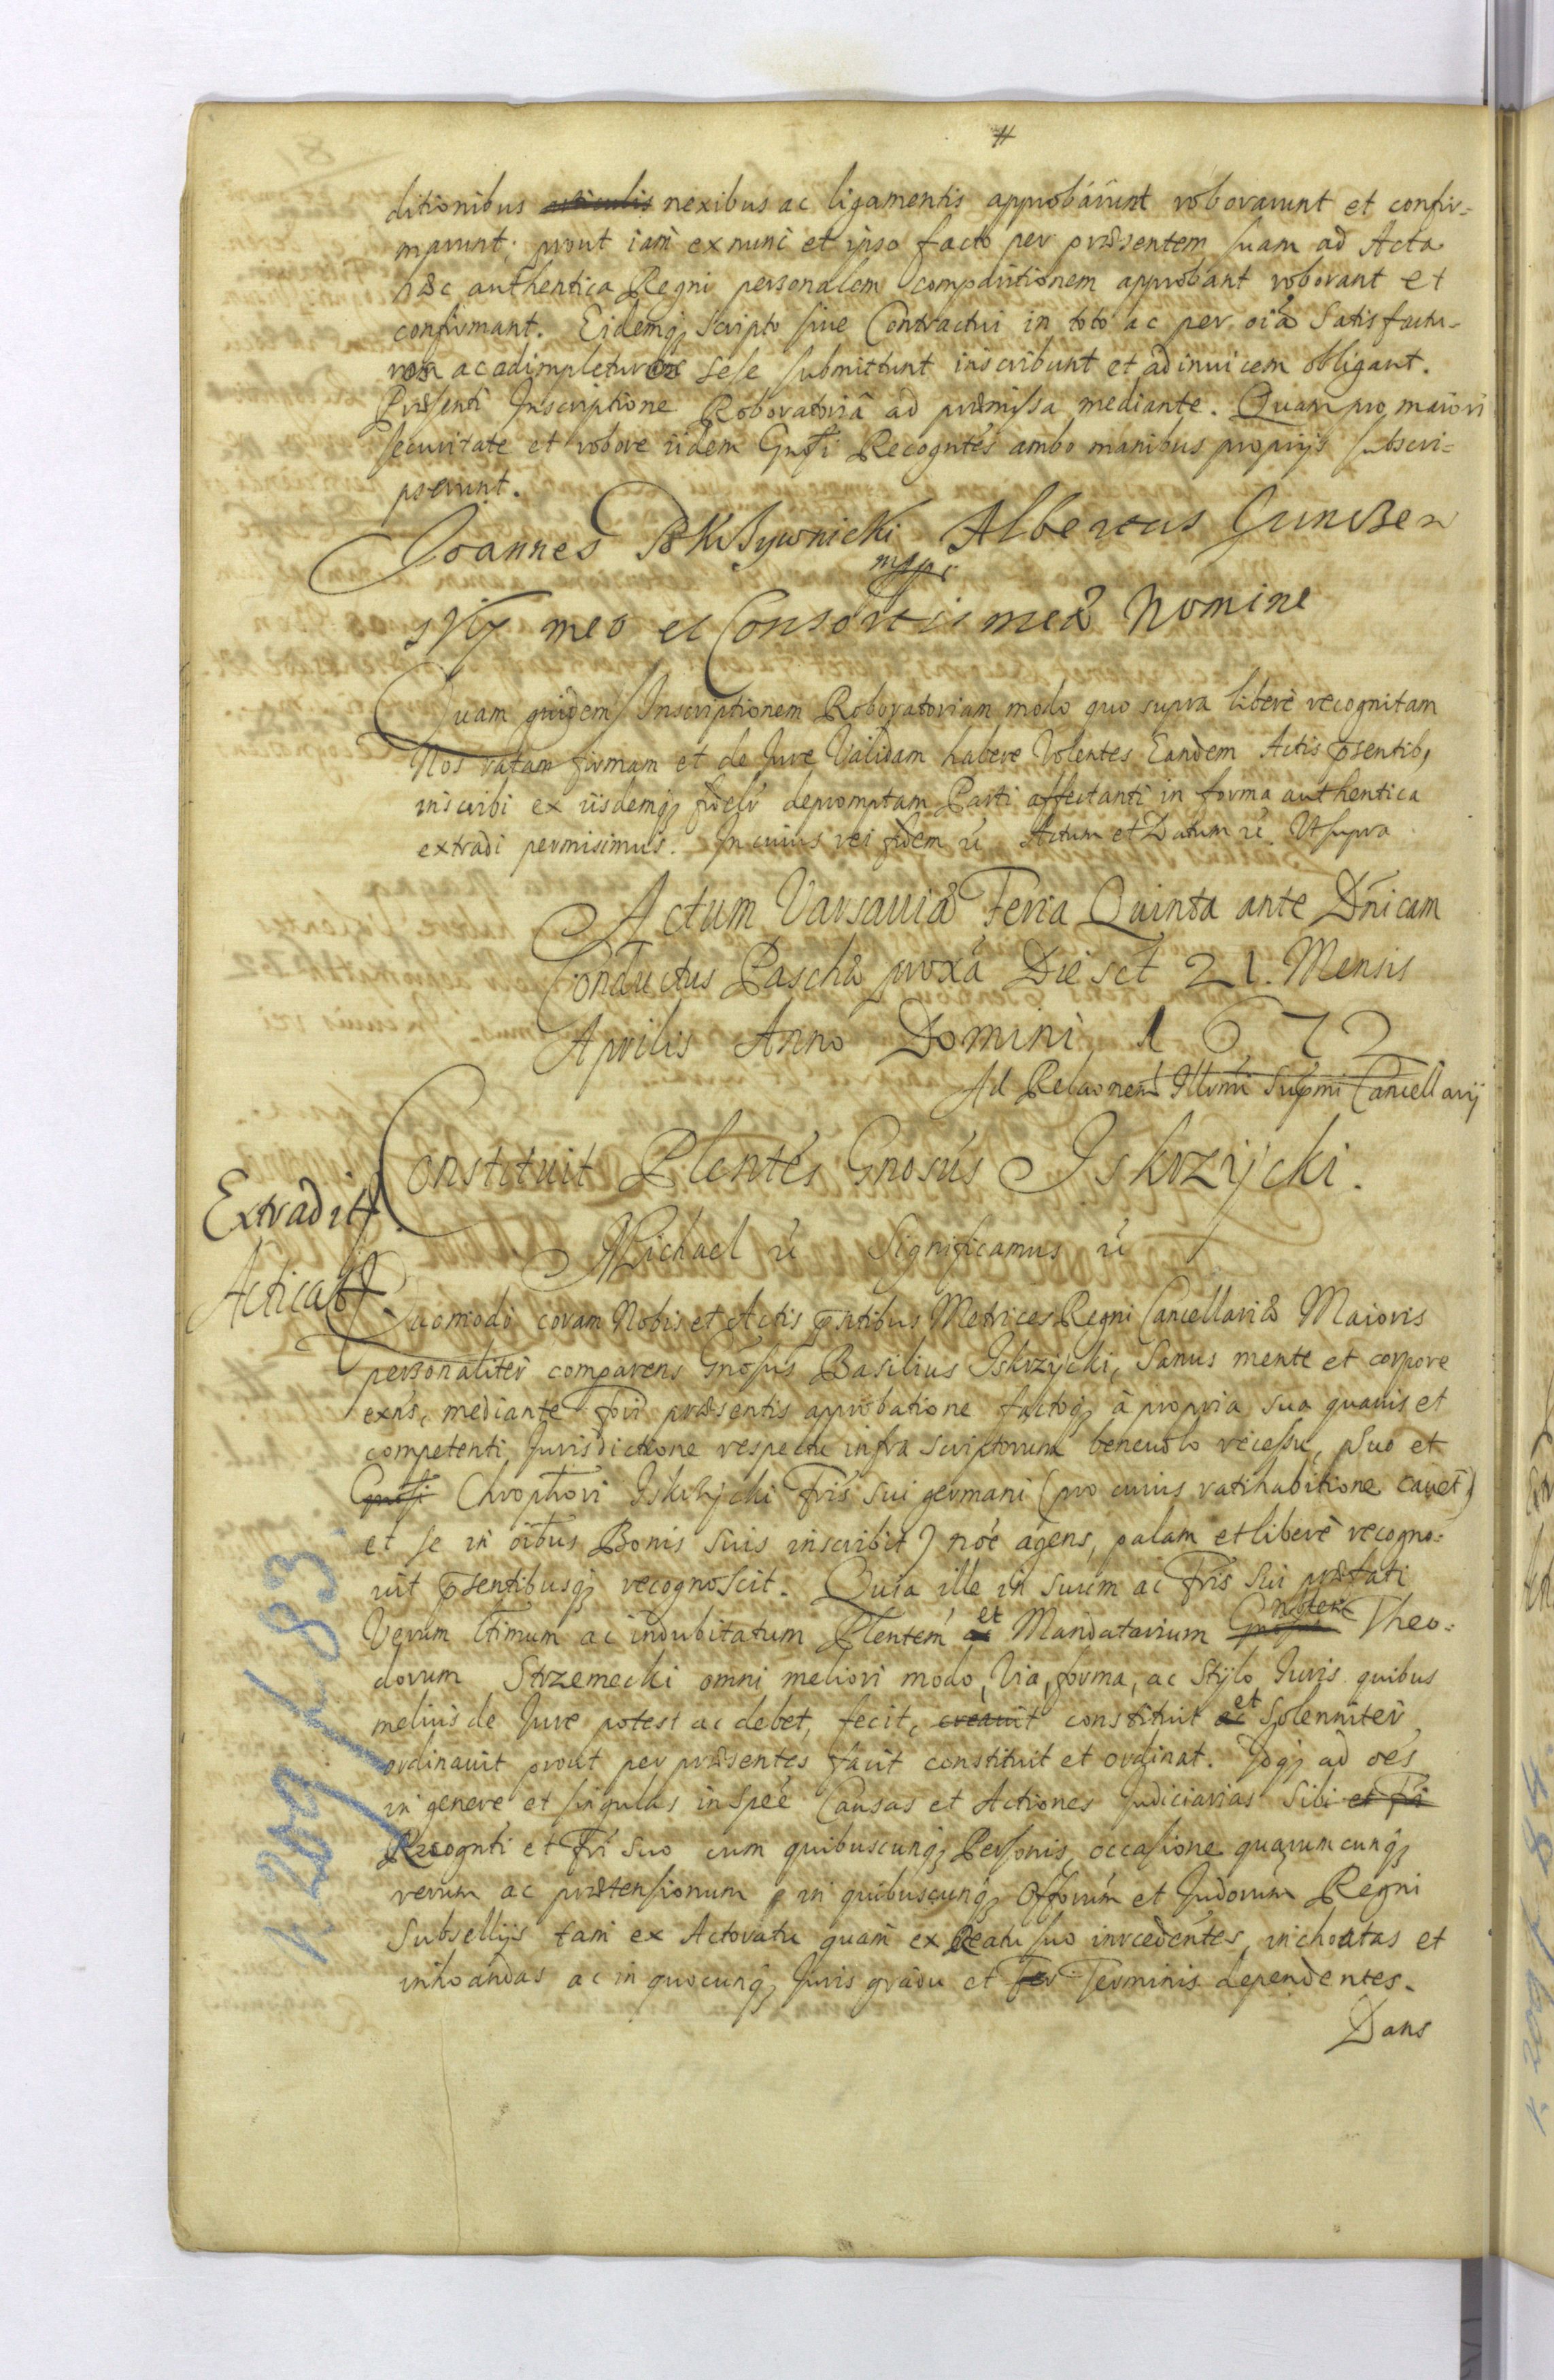 #
ditionibus nexibus ac ligamentis approbârunt roborarunt et confir=
marunt; prout iam ex nunc et ipso facto per præsentem suam ad Acta
hæc authentica Regni personalem comparitionem approbant roborant et
confirmant. Eidemq; scripto siue Contractui in toto ac per oîa Satisfactu-
ros ac adimpleturos sese submittunt inscribunt et adinuicem obligant.
Præsenti Inscriptione Roboratoriâ ad præmissa mediante. Quam pro maiori
securitate et robore iidem Gnosi Recogntes ambo manibus proprijs subscri=
pserunt.
Joannes Albertus
mpp
meo et Consortis meæ Nomine
Quam quidem Inscriptionem Roboratoriam modo quo supra liberè recognitam
Nos ratam firmam et de Jure Validam habere Volentes Eandem Actis psentib,
inscribi ex iisdemq; fidelr depromptam Parti affectanti in forma authentica
extradi permisimus. In cuius rei fidem rc Actum et Datum rc Vt supra
Actum Varsauiæ Feria Quinta ante Dnicam
Conductus Paschæ proxa Die sct 21. Mensis
Aprilis Anno Domini 1672
Ad Relaonem Illmi Supmi Cancellarij
Constituit Plentes Gnosus Iskrzijcki.
Extradit
Michael rc Significamus rc
Acticat
Quomodo coram Nobis et Actis psntibus Metrices Regni Cancellariæ Maioris
personaliter comparens Gnosus Basilius Iskrzijcki, Sanus mente et corpore
exns, mediante fori præsentis approbatione factoq; à propria sua quauis et
competenti Jurisdictione respectu infra scriptorum beneuolo recessu, Suo et
Gnosi Chrophori Iskrzijcki Fris sui germani (pro cuius ratihabitione cauet)
et se in oibus Bonis suis inscribit) noe agens, palam et liberè recogno=
uit psentibusq; recognoscit. Quia ille in suum ac Fris sui præfati
Verum ltimum ac indubitatum Plentem ac et Mandatarium Gnosum Theo=
dorum Strzemecki omni meliori modo, Via, forma, ac Stylo Juris quibus
melius de Jure potest ac debet, fecit, creauit constituit ac et Solenniter
ordinauit prout per præsentes facit constituit et ordinat. Idq; ad oes
in genere et singulas in spee Causas et Actiones Judiciarias Sibi et Fri
Recognti et Fri suo cum quibuscunq; Personis, occasione quarumcunq;
rerum ac prætensionum in quibuscunq; Offorum et Judorum Regni
Subsellijs tam ex Actoratu quam ex Reatu suo inrcedentes, inchoatas et
inhoandas ac in quocunq; Juris gradu et Ter Terminis dependentes.
Dans